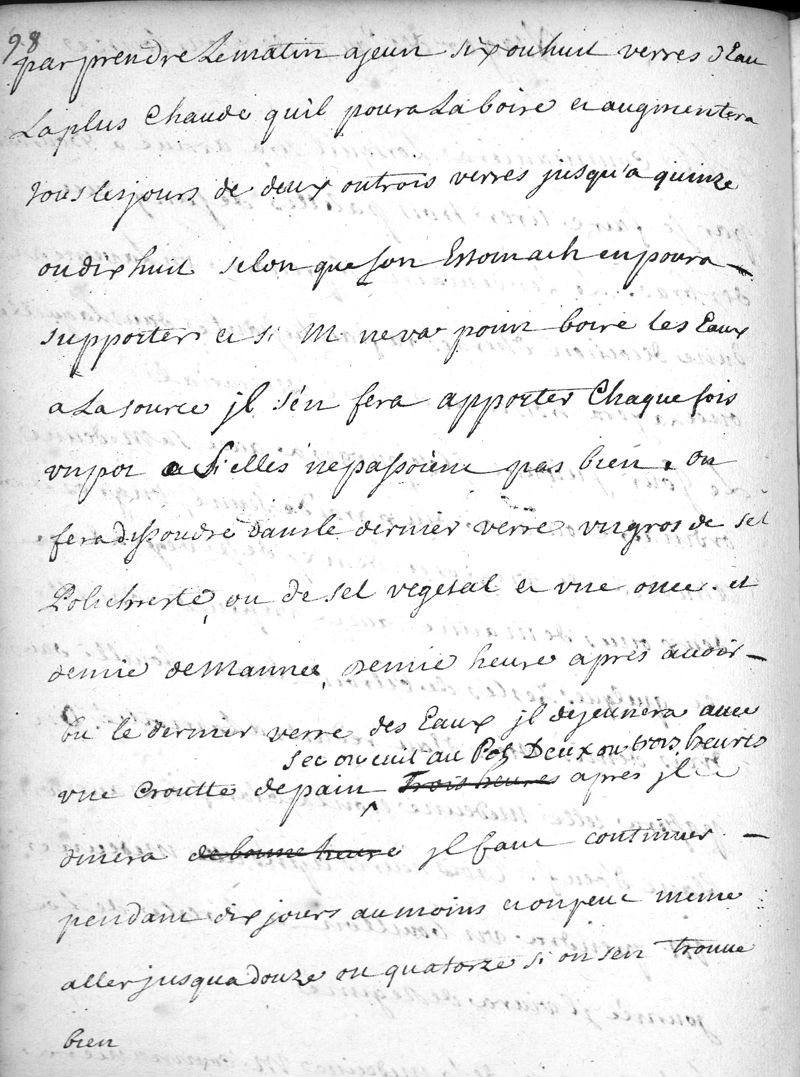 98
par prendre Le matin a jeun six ou huit verres d'Eau
La plus Chaude qu'il poura La boire et augmentera
tous les jours de deux ou trois verres jusqu'a quinze
ou dix huit selon que son Estomach en poura
supporter et si M ne va point boire les Eaux
a La source jl s'en fera apporter Chaque fois
vn pot Si elles ne passoient pas bien, on
fera dissoudre dans le dernier verre vn gros de sel
Polichreste, ou de sel vegetal et vne once et
demie de Manne, Demie heure après avoir
bû le dernier verre des Eaux jl dejeunera avec
sec ou cuit au Pot Deux ou trois heures
vne Croutte de pain Trois heures après jl
dinera de bonne heure jl faut continuer
pendant dix jours au moins et on peut meme
aller jusqua douze ou quatorze si on s'en trouve
bien